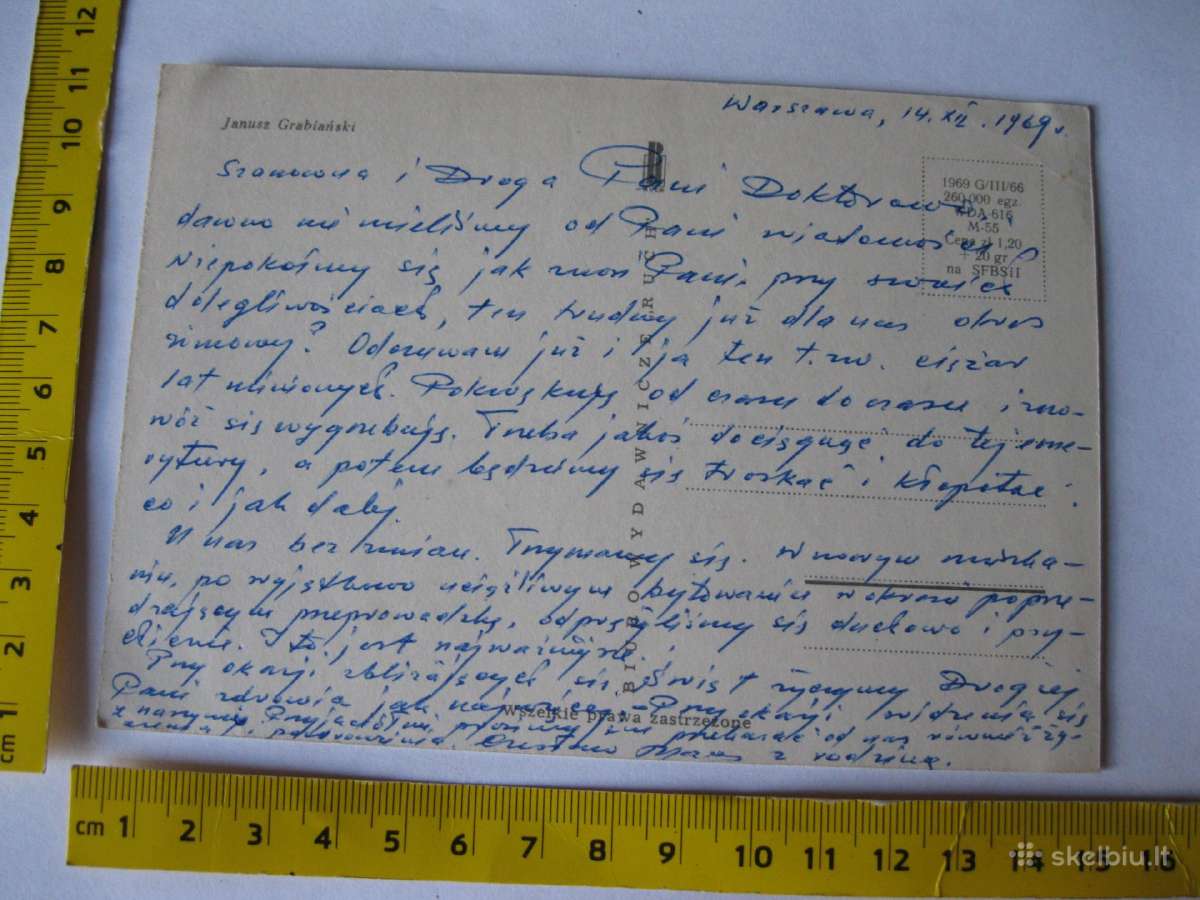 Warszawa, 14.XII.1969r.
Janusz Grabiański
Szanowna i Droga Pani Doktorowo,
dawno nie mieliśmy od Pani wiadomości
Niepokoimy się, jak znosi Pani, przy swoich
dolegliwościach, ten trudny już dla nas okres
zimowy? Odczuwam już i ja ten t.zw. ciężar
lat minionych. od czasu do czasu i zno-
wóż się wygrzebuję. Trzeba jakoś dociągnąć do tej eme-
rytury, a potem będziemy się troskać i kłopotać:
co i jak dalej.
U nas bez zmian. Trzymamy się. W nowym mieszka-
niu, po wyjątkowo uciążliwym bytowaniu w okresie poprze-
dzającym przeprowadzkę, odprężyliśmy się duchowo i
I to jest najważniejsze.
Przy okazji zbliżających się Świąt życzymy Drogiej
Pani zdrowia jak najwięcej. Przy okazji widzenia się
z naszymi Przyjaciółmi prosimy im przekazać od nas również ży-
pozdrowienia. z rodziną.
1969 G/III/66
260.000 egz.
WDA-616
M-55
Cena zł 1,20
+ 20 gr
na SFBSiI
BIURO WYDAWNICZE RUCH
Wszelkie prawa zastrzeżone
cm 1 2 3 4 5 6 7 8 9 10 11 12
cm 1 2 3 4 5 6 7 8 9 10 11 12 13 14 15 16
skelbiu.lt